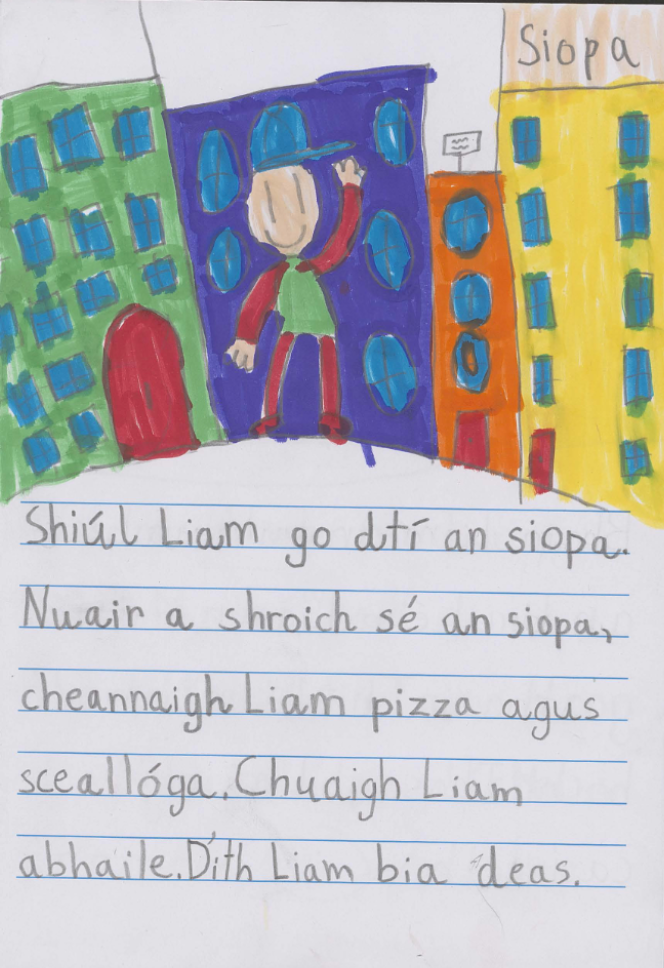 Siopa
Shiúl Liam go dtí an siopa.
Nuair a shroich sé an siopa,
cheannaigh Liam pizza agus
sceallóga. Chuaigh Liam
abhaile. Díth Liam bia deas.